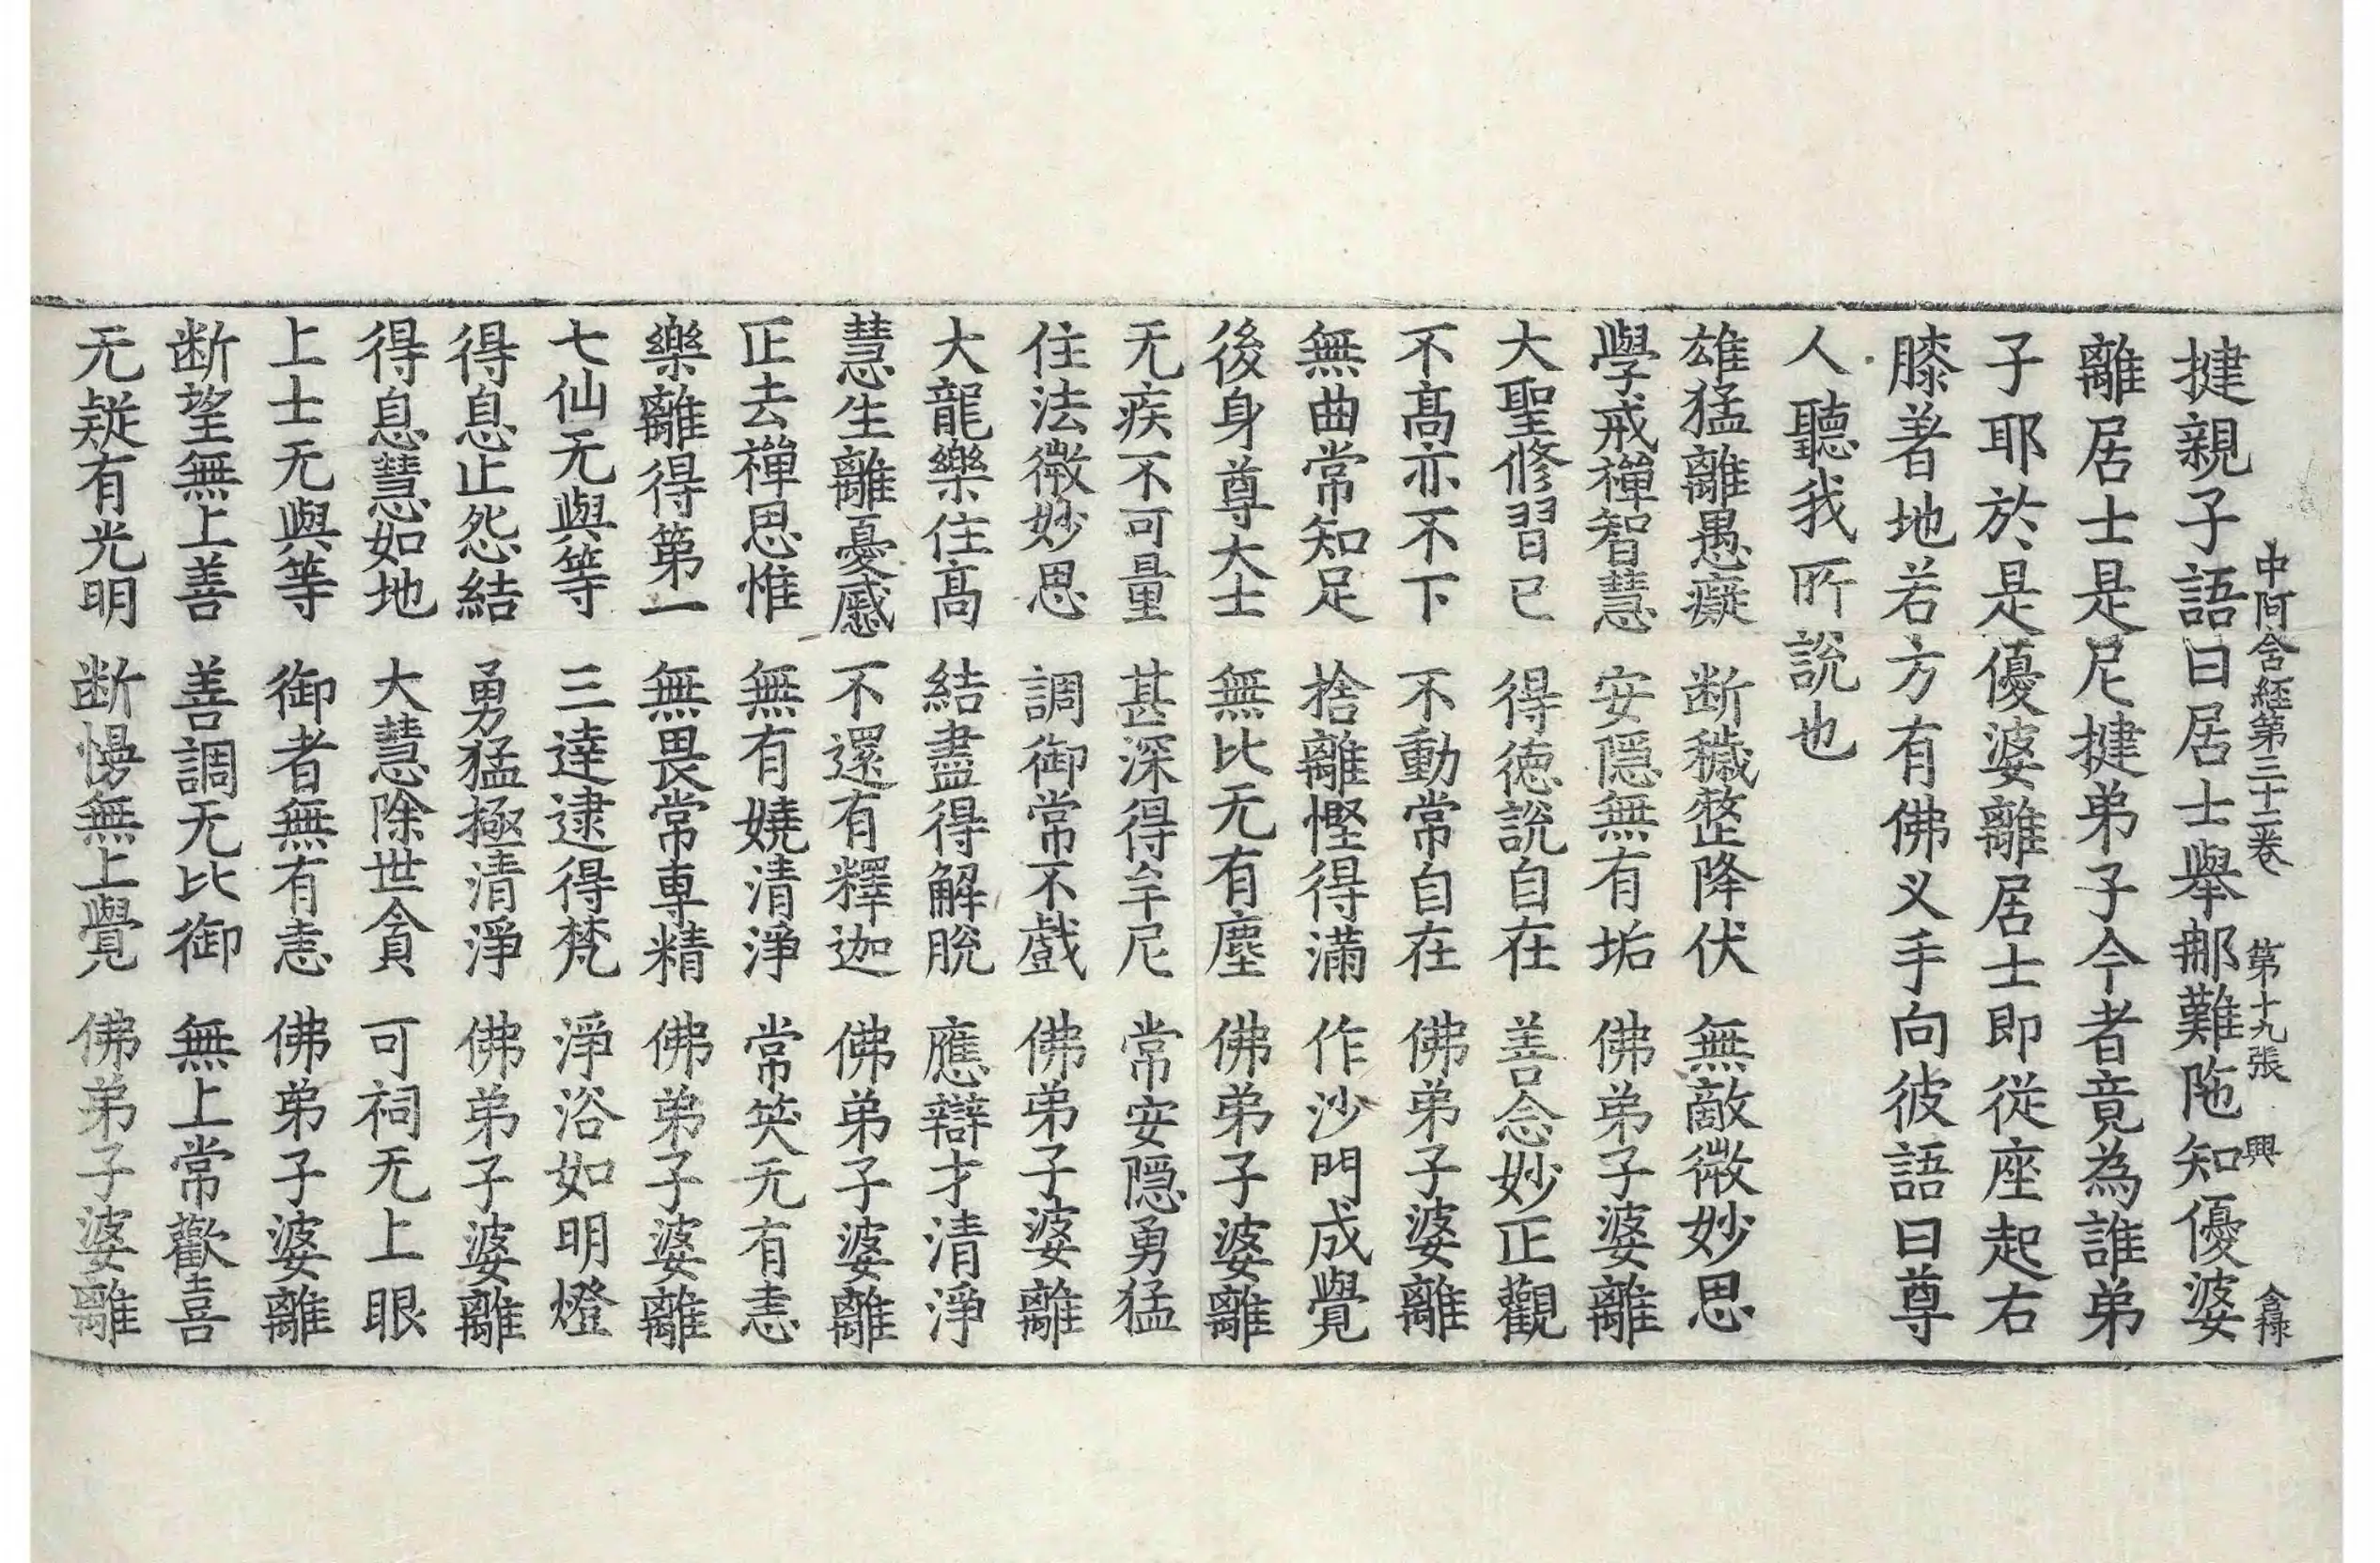 中阿含經第三十二卷 第十九張 興 含祿
揵親子語曰居士舉那難陁知優婆
離居士是尼揵弟子今者竟為誰弟
子耶於是優婆離居士即從座起右
膝著地若方有佛叉手向彼語曰尊
人聽我所說也
雄猛離愚癡 断穢整降伏 無敵微妙思
學戒禪智慧 安隱無有垢 佛弟子婆離
大聖修習已 得德說自在 善念妙正觀
不髙亦不下 不動常自在 佛弟子婆離
無曲常知足 捨離慳得滿 作沙門成覺
後身尊大士 無比无有塵 佛弟子婆離
无疾不可量 甚深得牟尼 常安隱勇猛
住法微妙思 調御常不戲 佛弟子婆離
大龍樂住髙 結盡得解脫 應辯才清淨
慧生離憂慼 不還有釋迦 佛弟子婆離
正去禪思惟 無有嬈清淨 常笑无有恚
樂離得第一 無畏常專精 佛弟子婆離
七仙无與等 三達逮得梵 淨浴如明燈
得息止怨結 勇猛極清淨 佛弟子婆離
得息慧如地 大慧除世貪 可祠无上眼
上士无與等 御者無有恚 佛弟子婆離
断望無上善 善調无比御 無上常歡喜
无疑有光明 断慢無上覺 佛弟子婆離